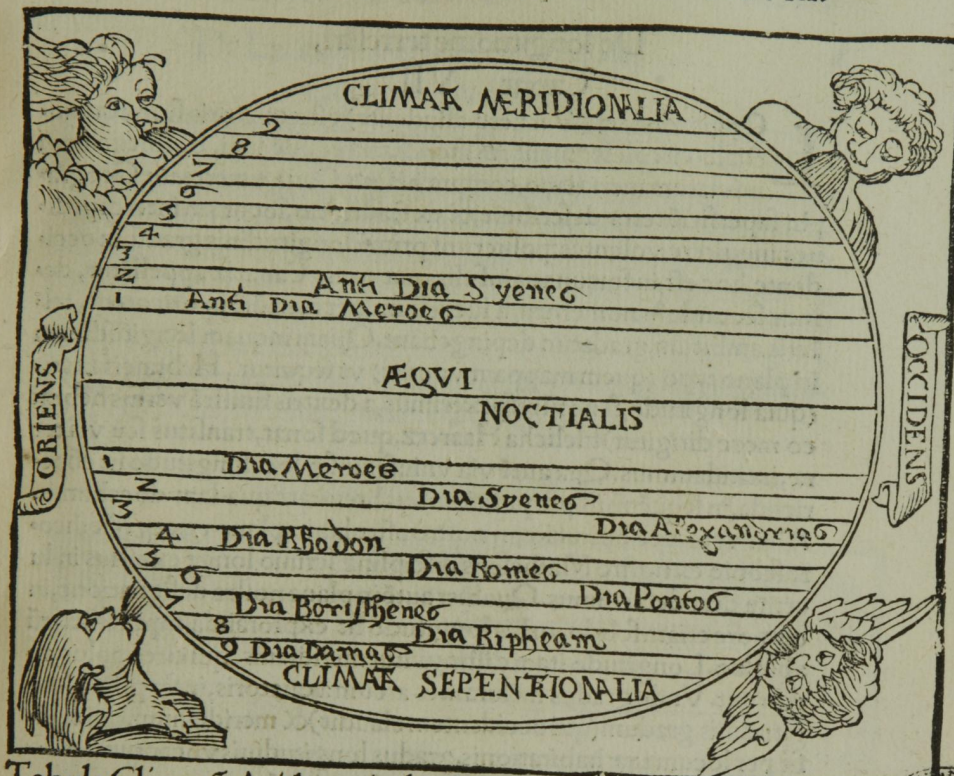 CLIMATA MERIDIONALIA
9
8
7
6
5
4
3
2 Anti Dia Syenes
1 Anti Dia Meroes
ORIENS
ÆQVI
NOCTIALIS
OCCIDENS
1 Dia Meroes
2 Dia Syenes
3 Dia Alexandrias
4 Dia Rhodon
5 Dia Romes
6 Dia Pontos
7 Dia Boristhenes
8 Dia Ripheam
9 Dia Damas
CLIMATA SEPENTRIONALIA